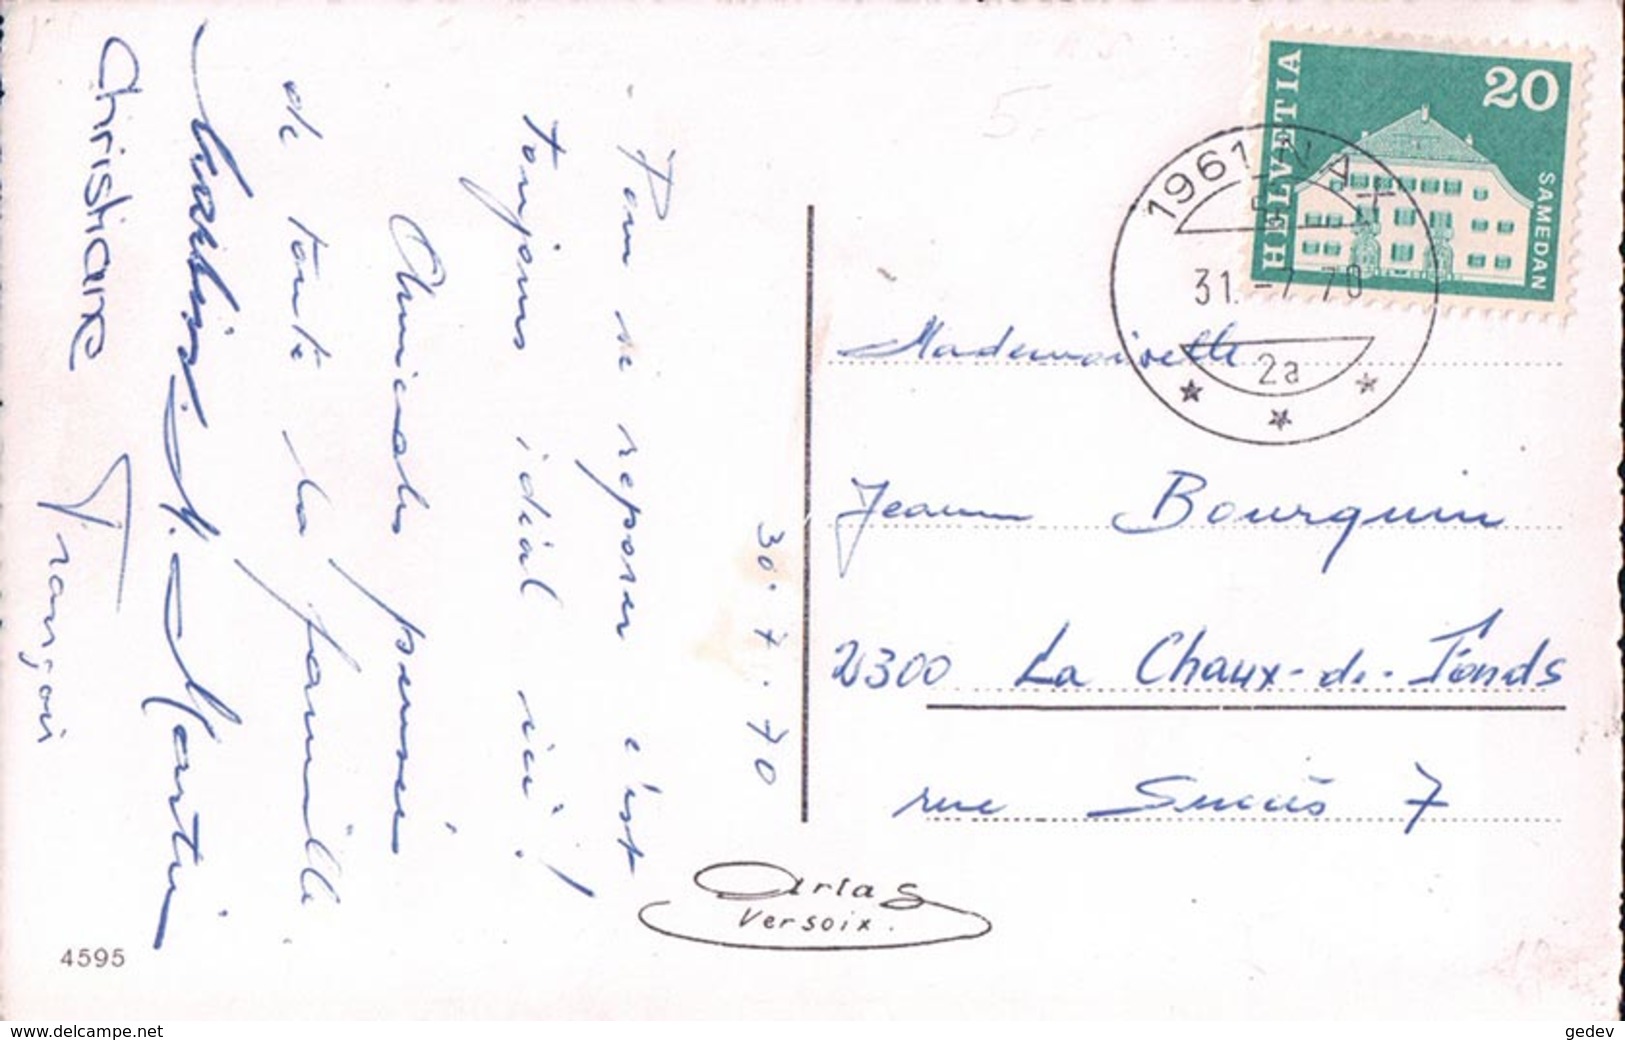 30.7.70
Pour se reposer c'est
toujours idéal ici!
Amicales pensées
de toute la famille
N. Martin
Christiane
François
4595
HELVETIA
20
SAMEDAN
1961 NAX
31.-7.70
2a
Mademoiselle
Jeanne Bourquin
2300 La Chaux-de-Fonds
rue Succès 7
Artas
Versoix.
www.delcampe.net
gedev